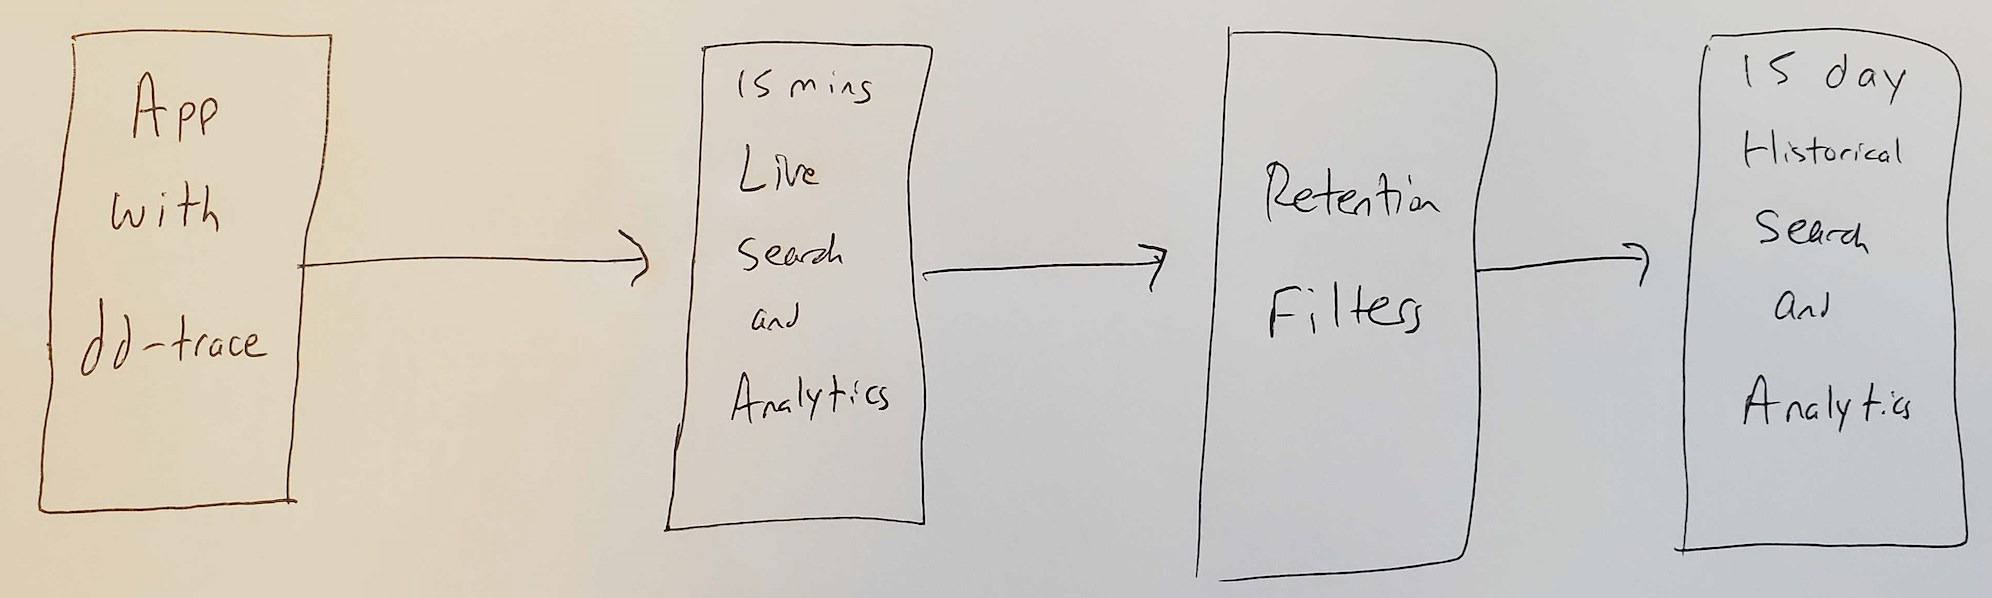 App
with
dd-trace
15 mins
Live
Search
and
Analytics
Retention
Filters
15 day
Historical
Search
and
Analytics